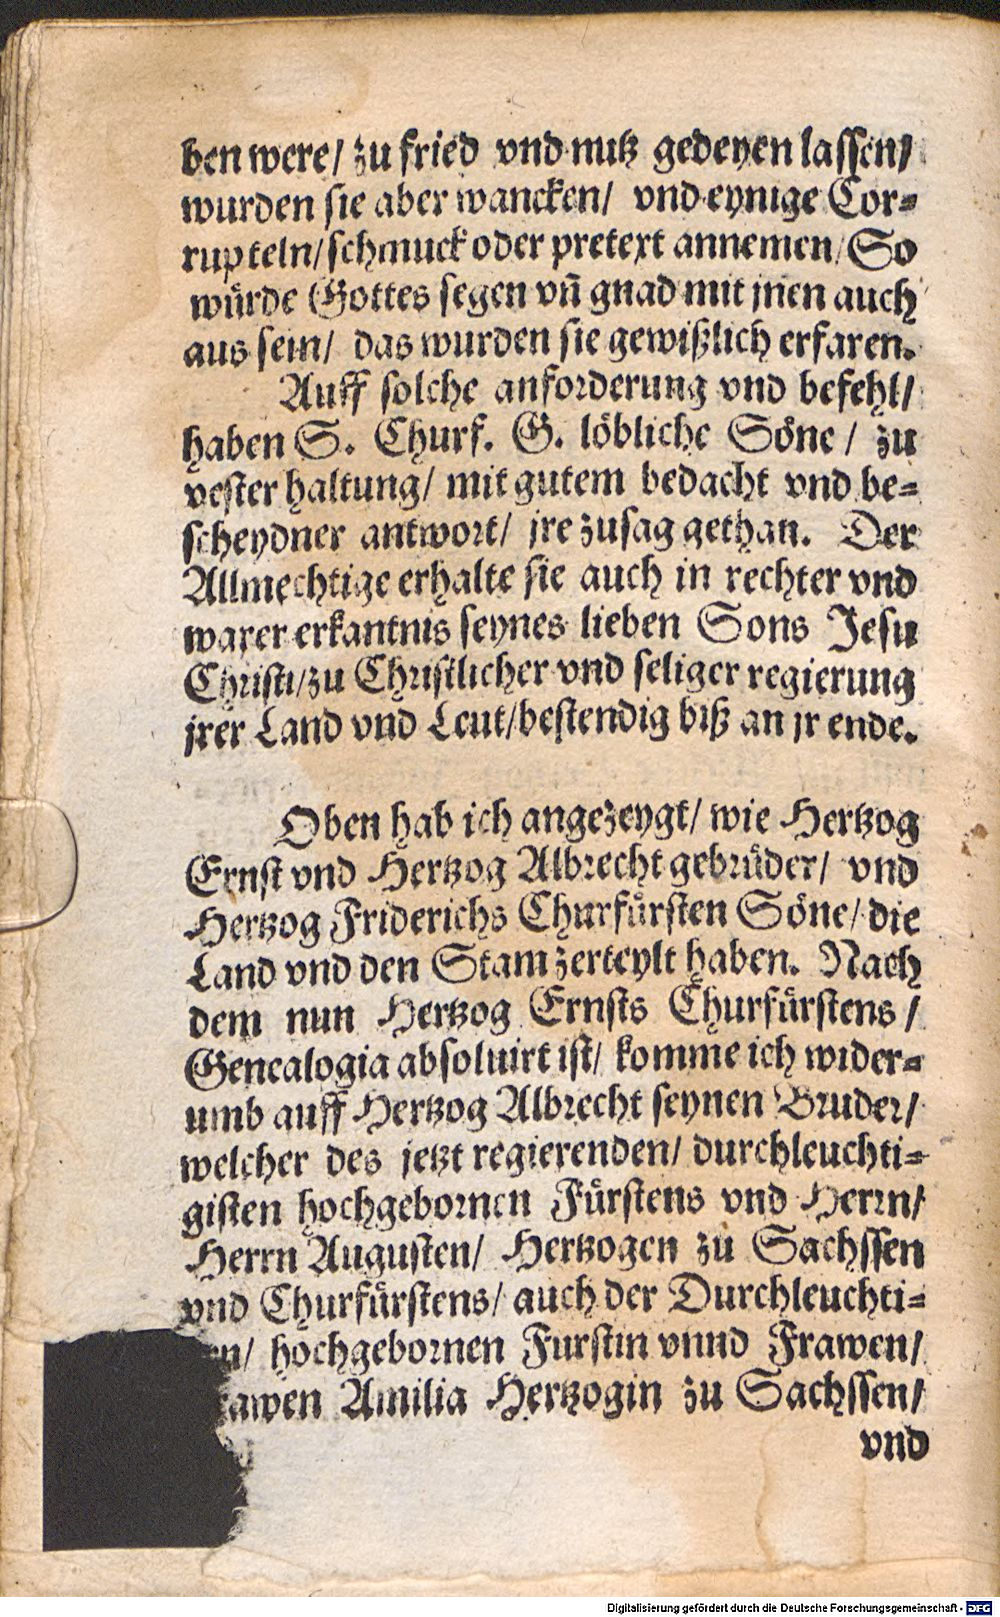 ben were/ zu fried vnd nutz gedeyen lassen/
wurden sie aber wancken/ vnd eynige Cor-
rupteln/ schmuck oder pretext annemen/ So
wuͤrde Gottes segen vñ gnad mit jnen auch
aus sein/ das wurden sie gewißlich erfaren.
Auff solche anforderung vnd befehl/
haben S. Churf. G. löbliche Soͤne/ zu
vester haltung/ mit gutem bedacht vnd be-
scheydner antwort/ jre zusag gethan. Der
Allmechtige erhalte sie auch in rechter vnd
warer erkantnis seynes lieben Sons Jesu
Christi/ zu Christlicher vnd seliger regierung
jrer Land vnd Leut/ bestendig biß an jr ende.
Oben hab ich angezeygt/ wie Hertzog
Ernst vnd Hertzog Albrecht gebruͤder/ vnd
Hertzog Friderichs Churfuͤrsten Soͤne/ die
Land vnd den Stam zerteylt haben. Nach
dem nun Hertzog Ernsts Churfuͤrstens/
Genealogia absoluirt ist/ komme ich wider-
umb auff Hertzog Albrecht seynen Bruder/
welcher des jetzt regierenden/ durchleuchti-
gisten hochgebornen Fuͤrstens vnd Herrn/
Herrn Augusten/ Hertzogen zu Sachssen
vnd Churfuͤrstens/ auch der Durchleuchti-
en/ hochgebornen Furstin vnnd Frawen/
rawen Amilia Hertzogin zu Sachssen/
vnd
Digitalisierung gefördert durch die Deutsche Forschungsgemeinschaft - DFG